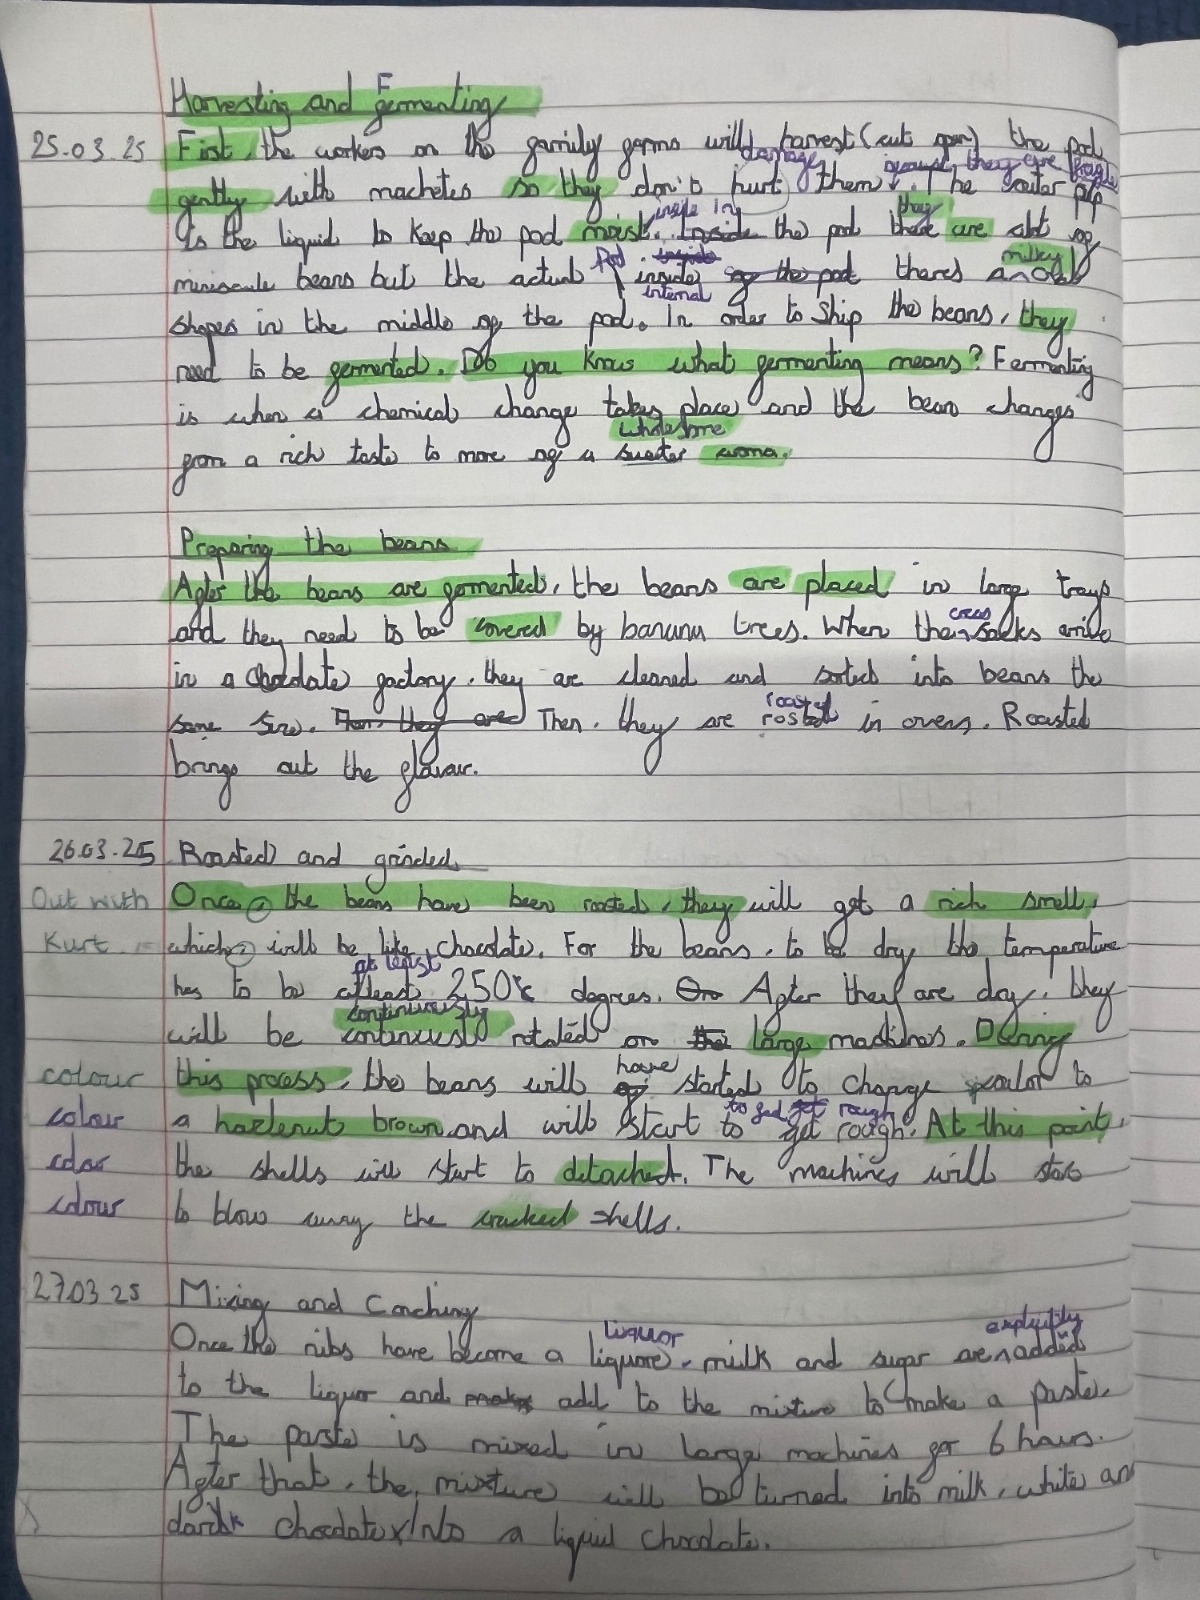 Harvesting and Fermenting
25.03.25 First, the workers on the family farms will harvest (cut open) the pod
damage because they are fragile
gently with machetes so they don't hurt them. The outer pulp
inside in they
is the liquid to keep the pod moist. Inside the pod there are alot of
Pod inside milky
miniscule beans but the actual inside of the pod theres an oval
internal
shapes in the middle of the pod. In order to ship the beans, they
need to be fermented. Do you know what fermenting means? Fermenting
is when a chemical change takes place and the bean changes
wholesome
from a rich taste to more of a sweeter aroma.
Preparing the beans
After the beans are fermented, the beans are placed in large trays
cocoa
and they need to be covered by banana trees. When the sacks arrive
in a chocolate factory, they are cleaned and sorted into beans the
roasted
same size. Then, they are Then, they are rosted in ovens. Roasted
brings out the flavour.
26.03.25 Roasted and grinded
Out with Once the beans have been roasted, they will get a rich smell,
Kurt which will be like chocolate. For the beans, to be dry the temperature
at least
has to be atleast 250°c degrees. On After they are dry, they
continuously
will be continuesly rotated on the large machines. During
have
colour this process, the beans will of started to change coulor to
to feel get rough
colour a hazlenut brown and will start to get rough. At this point,
colour the shells will start to detached. The machines will start
colour to blow away the cracked shells.
27.03.25 Mixing and Conching
liquor explicitly
Once the nibs have become a liquore, milk and sugar are added
to the liquor and add to the mixture to make a paste.
The paste is mixed in large machines for 6 hours.
After that, the mixture will be turned into milk, white an
dark chocolate Into a liquid chocolate.